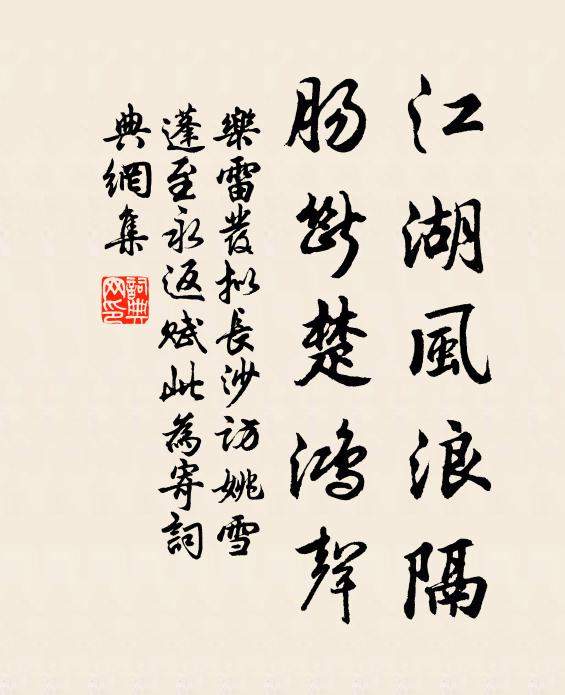 江湖風浪隔
腸斷楚鴻聲
樂雷發拟長沙訪姚雪
蓬至永返賦此為寄詞
典網集
詞典
网印